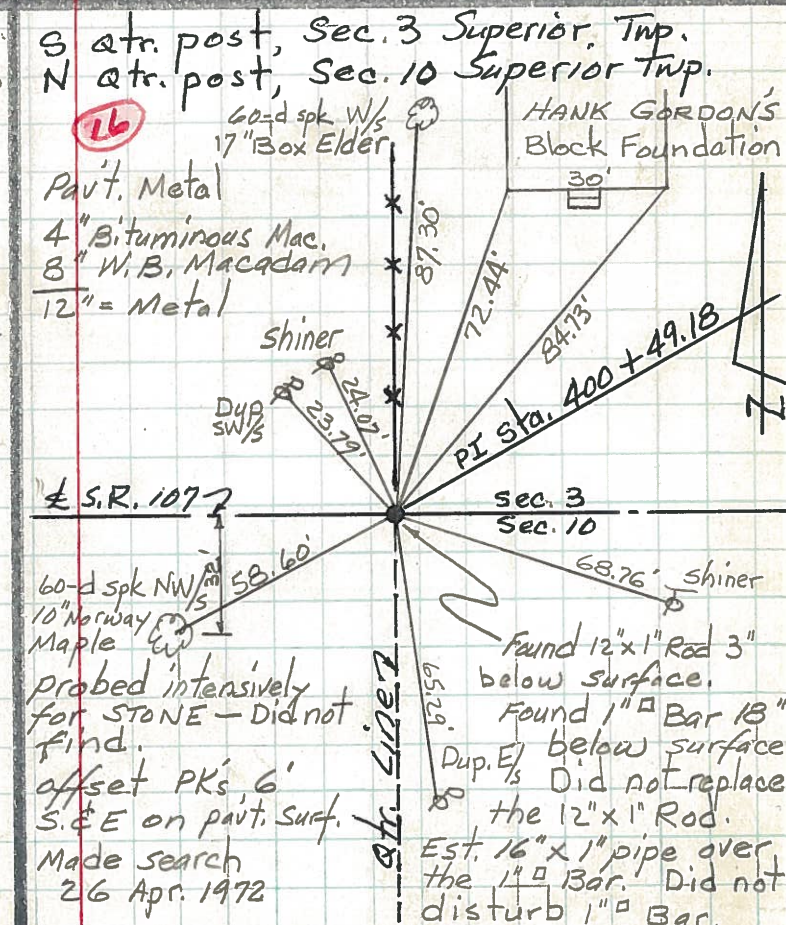 S Qtr. post, Sec. 3 Superior Twp.
N Qtr. post, Sec. 10 Superior Twp.
16
60-d spk W/s
17" Box Elder
HANK GORDON'S
Block Foundation
30'
Pav't. Metal
4" Bituminous Mac.
8" W.B. Macadam
12" = Metal
87.30'
72.44'
84.73'
PI Sta. 400 + 49.18
N
Shiner
24.07'
Dup.
SW/s
23.79'
℄ S.R. 107
Sec. 3
Sec. 10
58.60'
32'
68.76'
Shiner
60-d spk NW/s
10" Norway
Maple
65.29'
Dup. E/s
Qtr. Line
probed intensively
for STONE — Did not
find.
offset PK's, 6'
S. & E on pav't. surf.
Made search
26 Apr. 1972
Found 12" x 1" Rod 3"
below surface.
Found 1" □ Bar 18"
below surface
Did not replace
the 12" x 1" Rod.
Est. 16" x 1" pipe over
the 1" □ Bar. Did not
disturb 1" □ Bar.